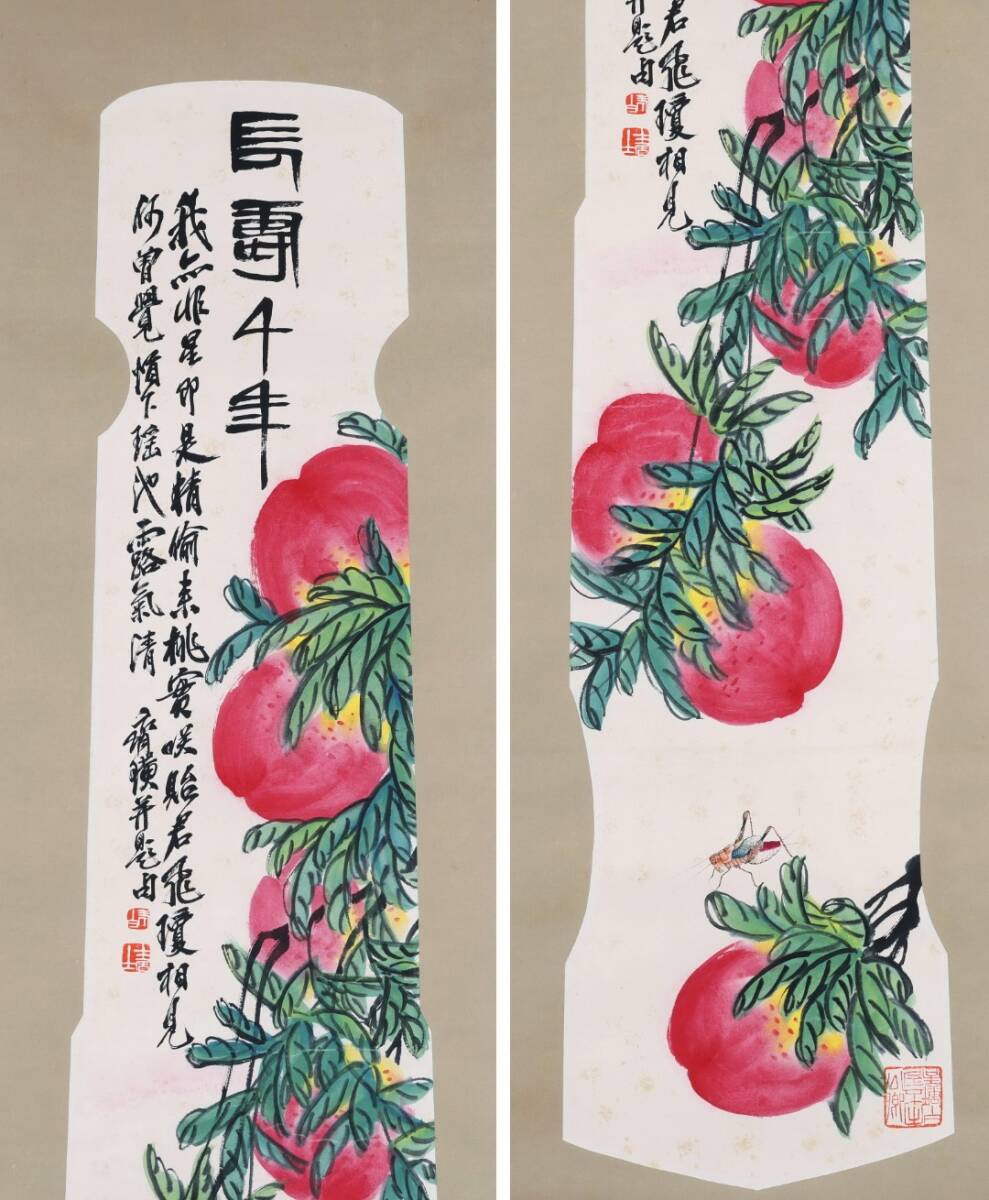 長壽千年
我亦非星即是精偷來桃實咲貽君飛瓊相見
何曾覺悄下瑤池露氣清 齊璜并題句
君飛瓊相見
并題句